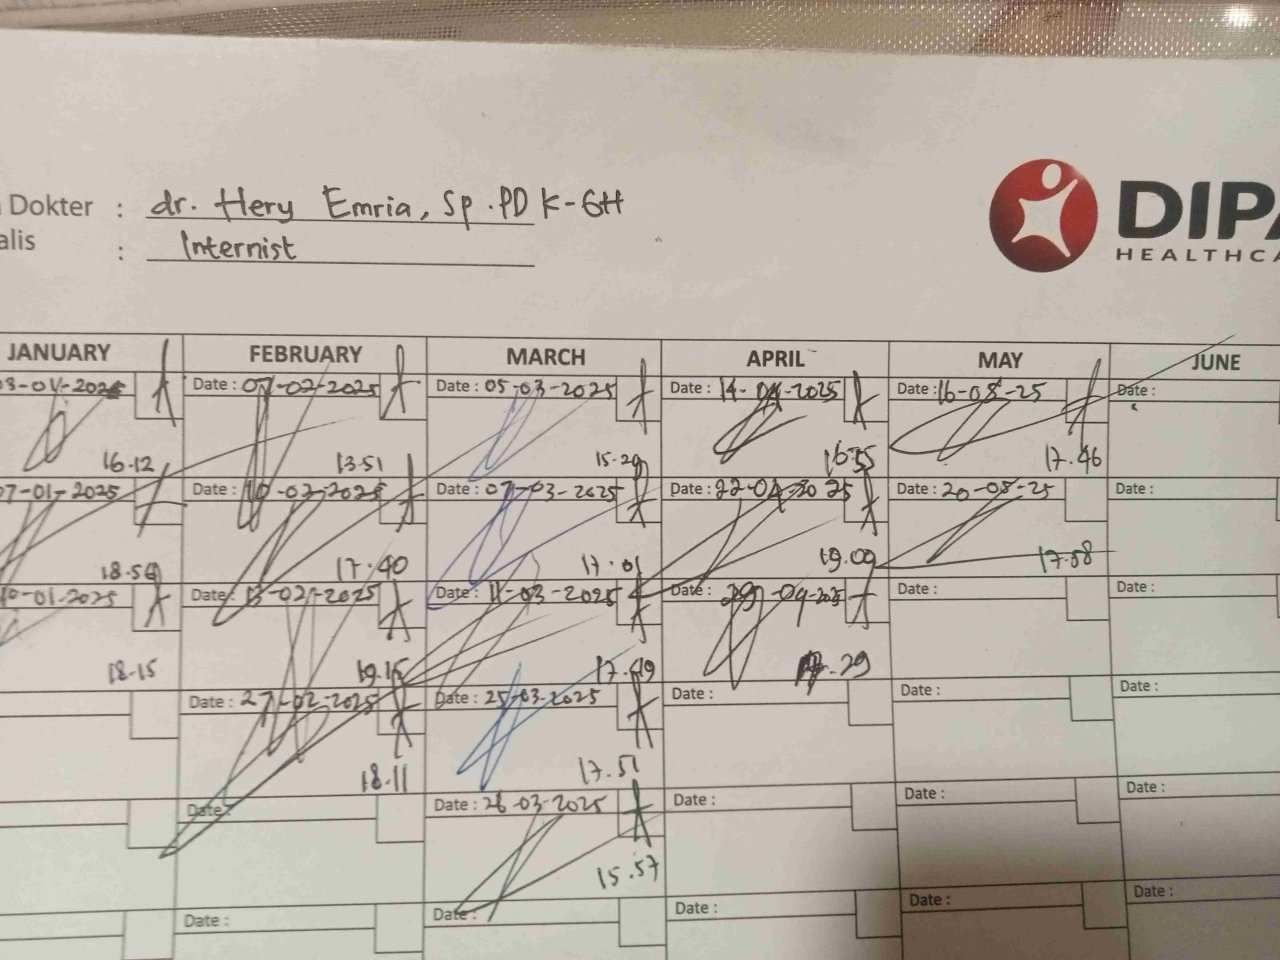 Dokter : dr. Hery Emria, Sp.PD K-GH
alis : Internist
DIPA
HEALTHCA
JANUARY FEBRUARY MARCH APRIL MAY JUNE
Date : 07-02-2025 Date : 05-03-2025 Date : 14-04-2025 Date : 16-05-25 Date :
16.12 13.51 15.29 16.55 17.46
07-01-2025 Date : 10-02-2025 Date : 07-03-2025 Date : 22-04-2025 Date : 20-05-25 Date :
18.50 17.40 17.01 19.09 17.58
10-01-2025 Date : 13-02-2025 Date : 11-03-2025 Date : 29-04-2025 Date : Date :
18.15 19.15 17.49 29
Date : 27-02-2025 Date : 25-03-2025 Date : Date : Date :
18.11 17.51
Date : Date : 26-03-2025 Date : Date : Date :
15.57
Date : Date : Date : Date : Date :